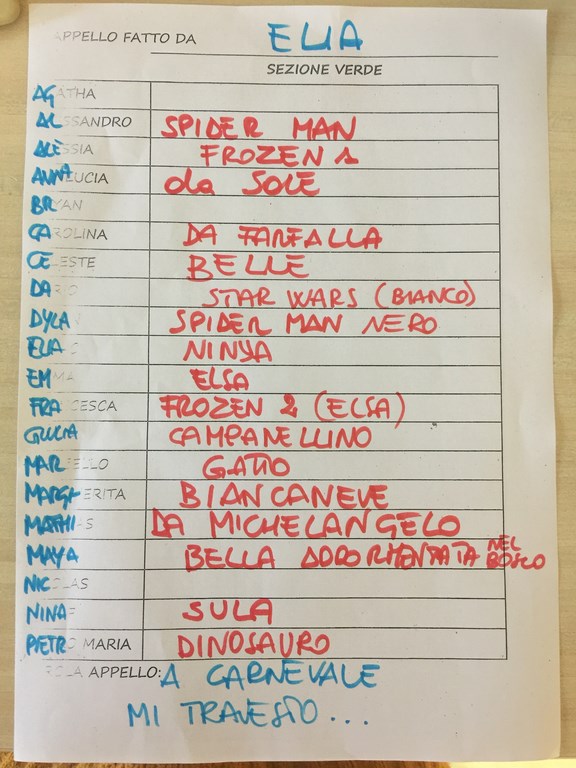 APPELLO FATTO DA ELIA
SEZIONE VERDE
AGATHA
ALESSANDRO SPIDER MAN
ALESSIA FROZEN 1
ANNALUCIA da SOLE
BRYAN
CAROLINA DA FARFALLA
CELESTE BELLE
DARIO STAR WARS (BIANCO)
DYLAN SPIDER MAN NERO
ELIA C NINJA
EMMA ELSA
FRANCESCA FROZEN 2 (ELSA)
GIULIA CAMPANELLINO
MARCELLO GATTO
MARGHERITA BIANCANEVE
MATHIAS DA MICHELANGELO
MAYA BELLA ADDORMENTATA NEL BOSCO
NICOLAS
NINA SULA
PIETRO MARIA DINOSAURO
PAROLA APPELLO: A CARNEVALE
MI TRAVESTO...